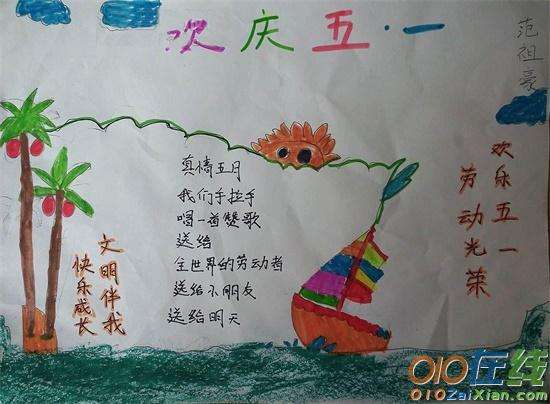 欢庆五·一
范祖豪
真情五月
我们手拉手
唱一首赞歌
送给
全世界的劳动者
送给小朋友
送给明天
欢乐五一
劳动光荣
文明伴我
快乐成长
010在线
010ZaiXian.com